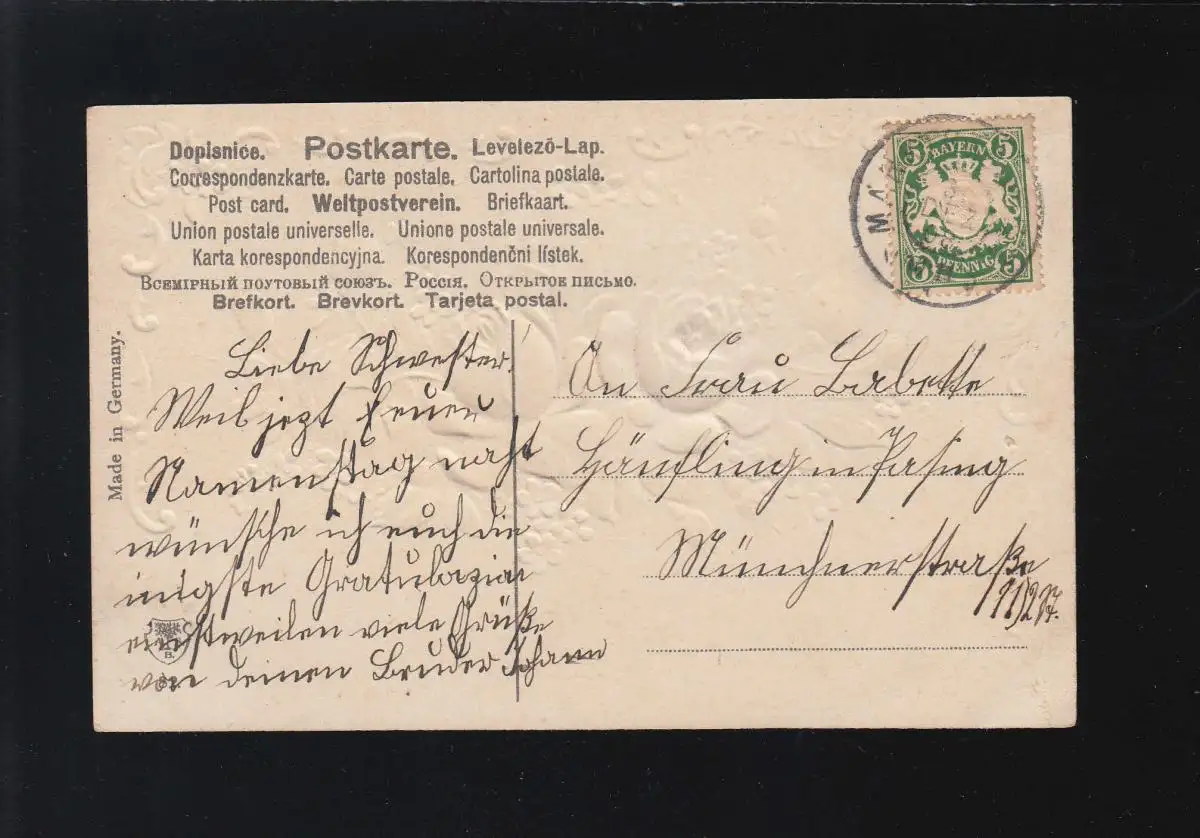 Dopisnice. Postkarte. Levelező-Lap.
Correspondenzkarte. Carte postale. Cartolina postale.
Post card. Weltpostverein. Briefkaart.
Union postale universelle. Unione postale universale.
Karta korespondencyjna. Korespondenční lístek.
Всемірный поутовый союзъ. Россія. Открытое письмо.
Brefkort. Brevkort. Tarjeta postal.
Made in Germany.
5 BAYERN 5
5 PFENNIG 5
Liebe Schwester!
Weil jezt Euer
Namenstag naht
wünsche ich euch die
inigste Gratulazion
einstweilen viele Grüße
von deinen Bruder Johann
An Frau Babette
Häufling in Pasing
Münchnerstraße
11/2
B.